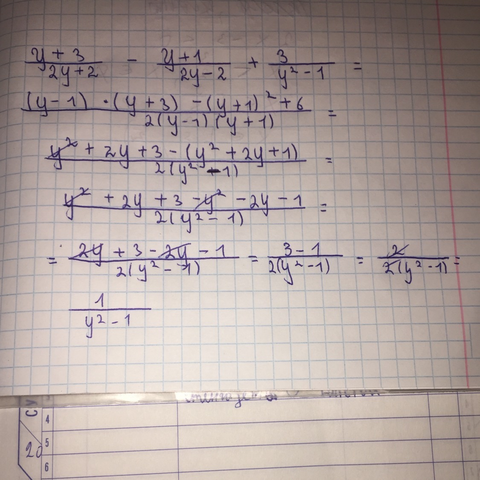 (y + 3)/(2y + 2) - (y + 1)/(2y - 2) + 3/(y² - 1) =
((y - 1) · (y + 3) - (y + 1)² + 6)/(2(y - 1)(y + 1)) =
(y² + 2y + 3 - (y² + 2y + 1))/(2(y² - 1)) =
(y² + 2y + 3 - y² - 2y - 1)/(2(y² - 1)) =
= (2y + 3 - 2y - 1)/(2(y² - 1)) = (3 - 1)/(2(y² - 1)) = 2/(2(y² - 1)) =
1/(y² - 1)
4
5
6